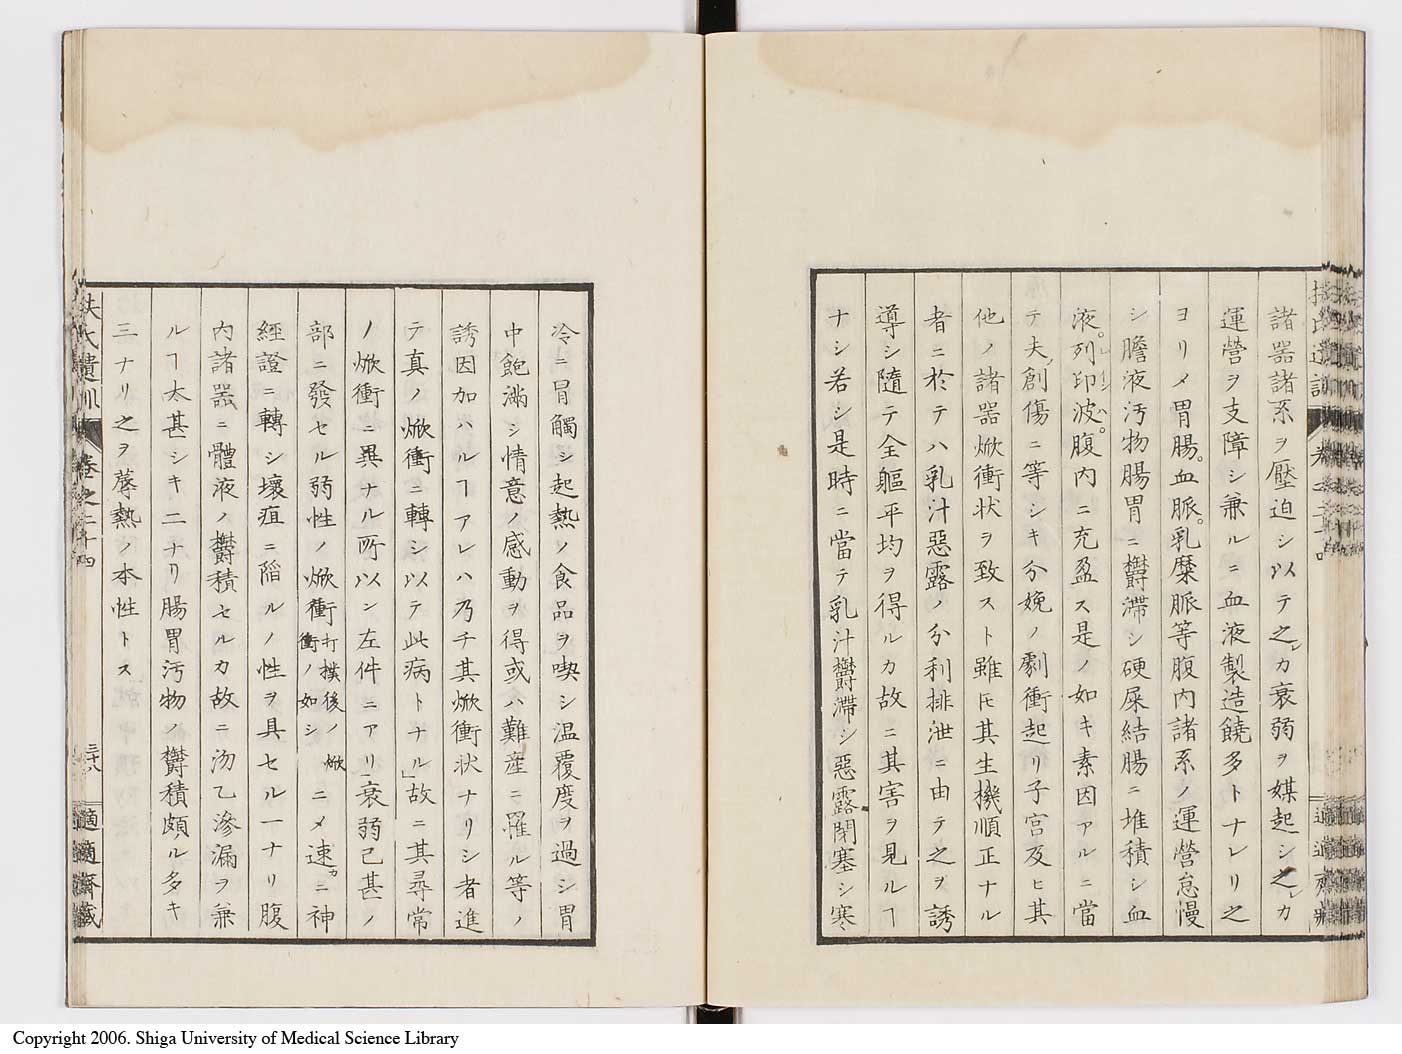 諸器諸系ヲ壓迫シ以テ之レカ衰弱ヲ媒起シ之レカ
運營ヲ支障シ兼ルニ血液製造饒多トナレリ之
ヨリメ胃腸。血脈。乳糜脈等腹内諸系ノ運營怠慢
シ膽液汚物腸胃ニ欝滯シ硬屎結腸ニ堆積シ血
液。列印波。腹内ニ充盈ス是ノ如キ素因アルニ當
テ夫ノ創傷ニ等シキ分娩ノ劇衝起リ子宮及ヒ其
他ノ諸器焮衝状ヲ致スト雖𪜈其生機順正ナル
者ニ於テハ乳汁惡露ノ分利排泄ニ由テ之ヲ誘
導シ隨テ全軀平均ヲ得ルカ故ニ其害ヲ見ルヿ
ナシ若シ是時ニ當テ乳汁欝滯シ惡露閉塞シ寒
冷ニ冒觸シ起熱ノ食品ヲ喫シ温覆度ヲ過シ胃
中飽滿シ情意ノ感動ヲ得或ハ難産ニ罹ル等ノ
誘因加ハルヿアレハ乃チ其焮衝状ナリシ者進
テ真ノ焮衝ニ轉シ以テ此病トナル」故ニ其尋常
ノ焮衝ニ異ナル所以ン左件ニアリ」衰弱已甚ノ
部ニ發セル弱性ノ焮衝打撲後ノ焮衝ノ如シニメ速カニ神
經證ニ轉シ壞疽ニ陷ルノ性ヲ具セル一ナリ腹
内諸器ニ體液ノ欝積セルカ故ニ沕乙滲漏ヲ兼
ルヿ太甚シキ二ナリ腸胃汚物ノ欝積頗ル多キ
三ナリ之ヲ蓐熱ノ本性トス
扶氏遺訓
卷之二十四
三十八
適適齋藏
Copyright 2006. Shiga University of Medical Science Library